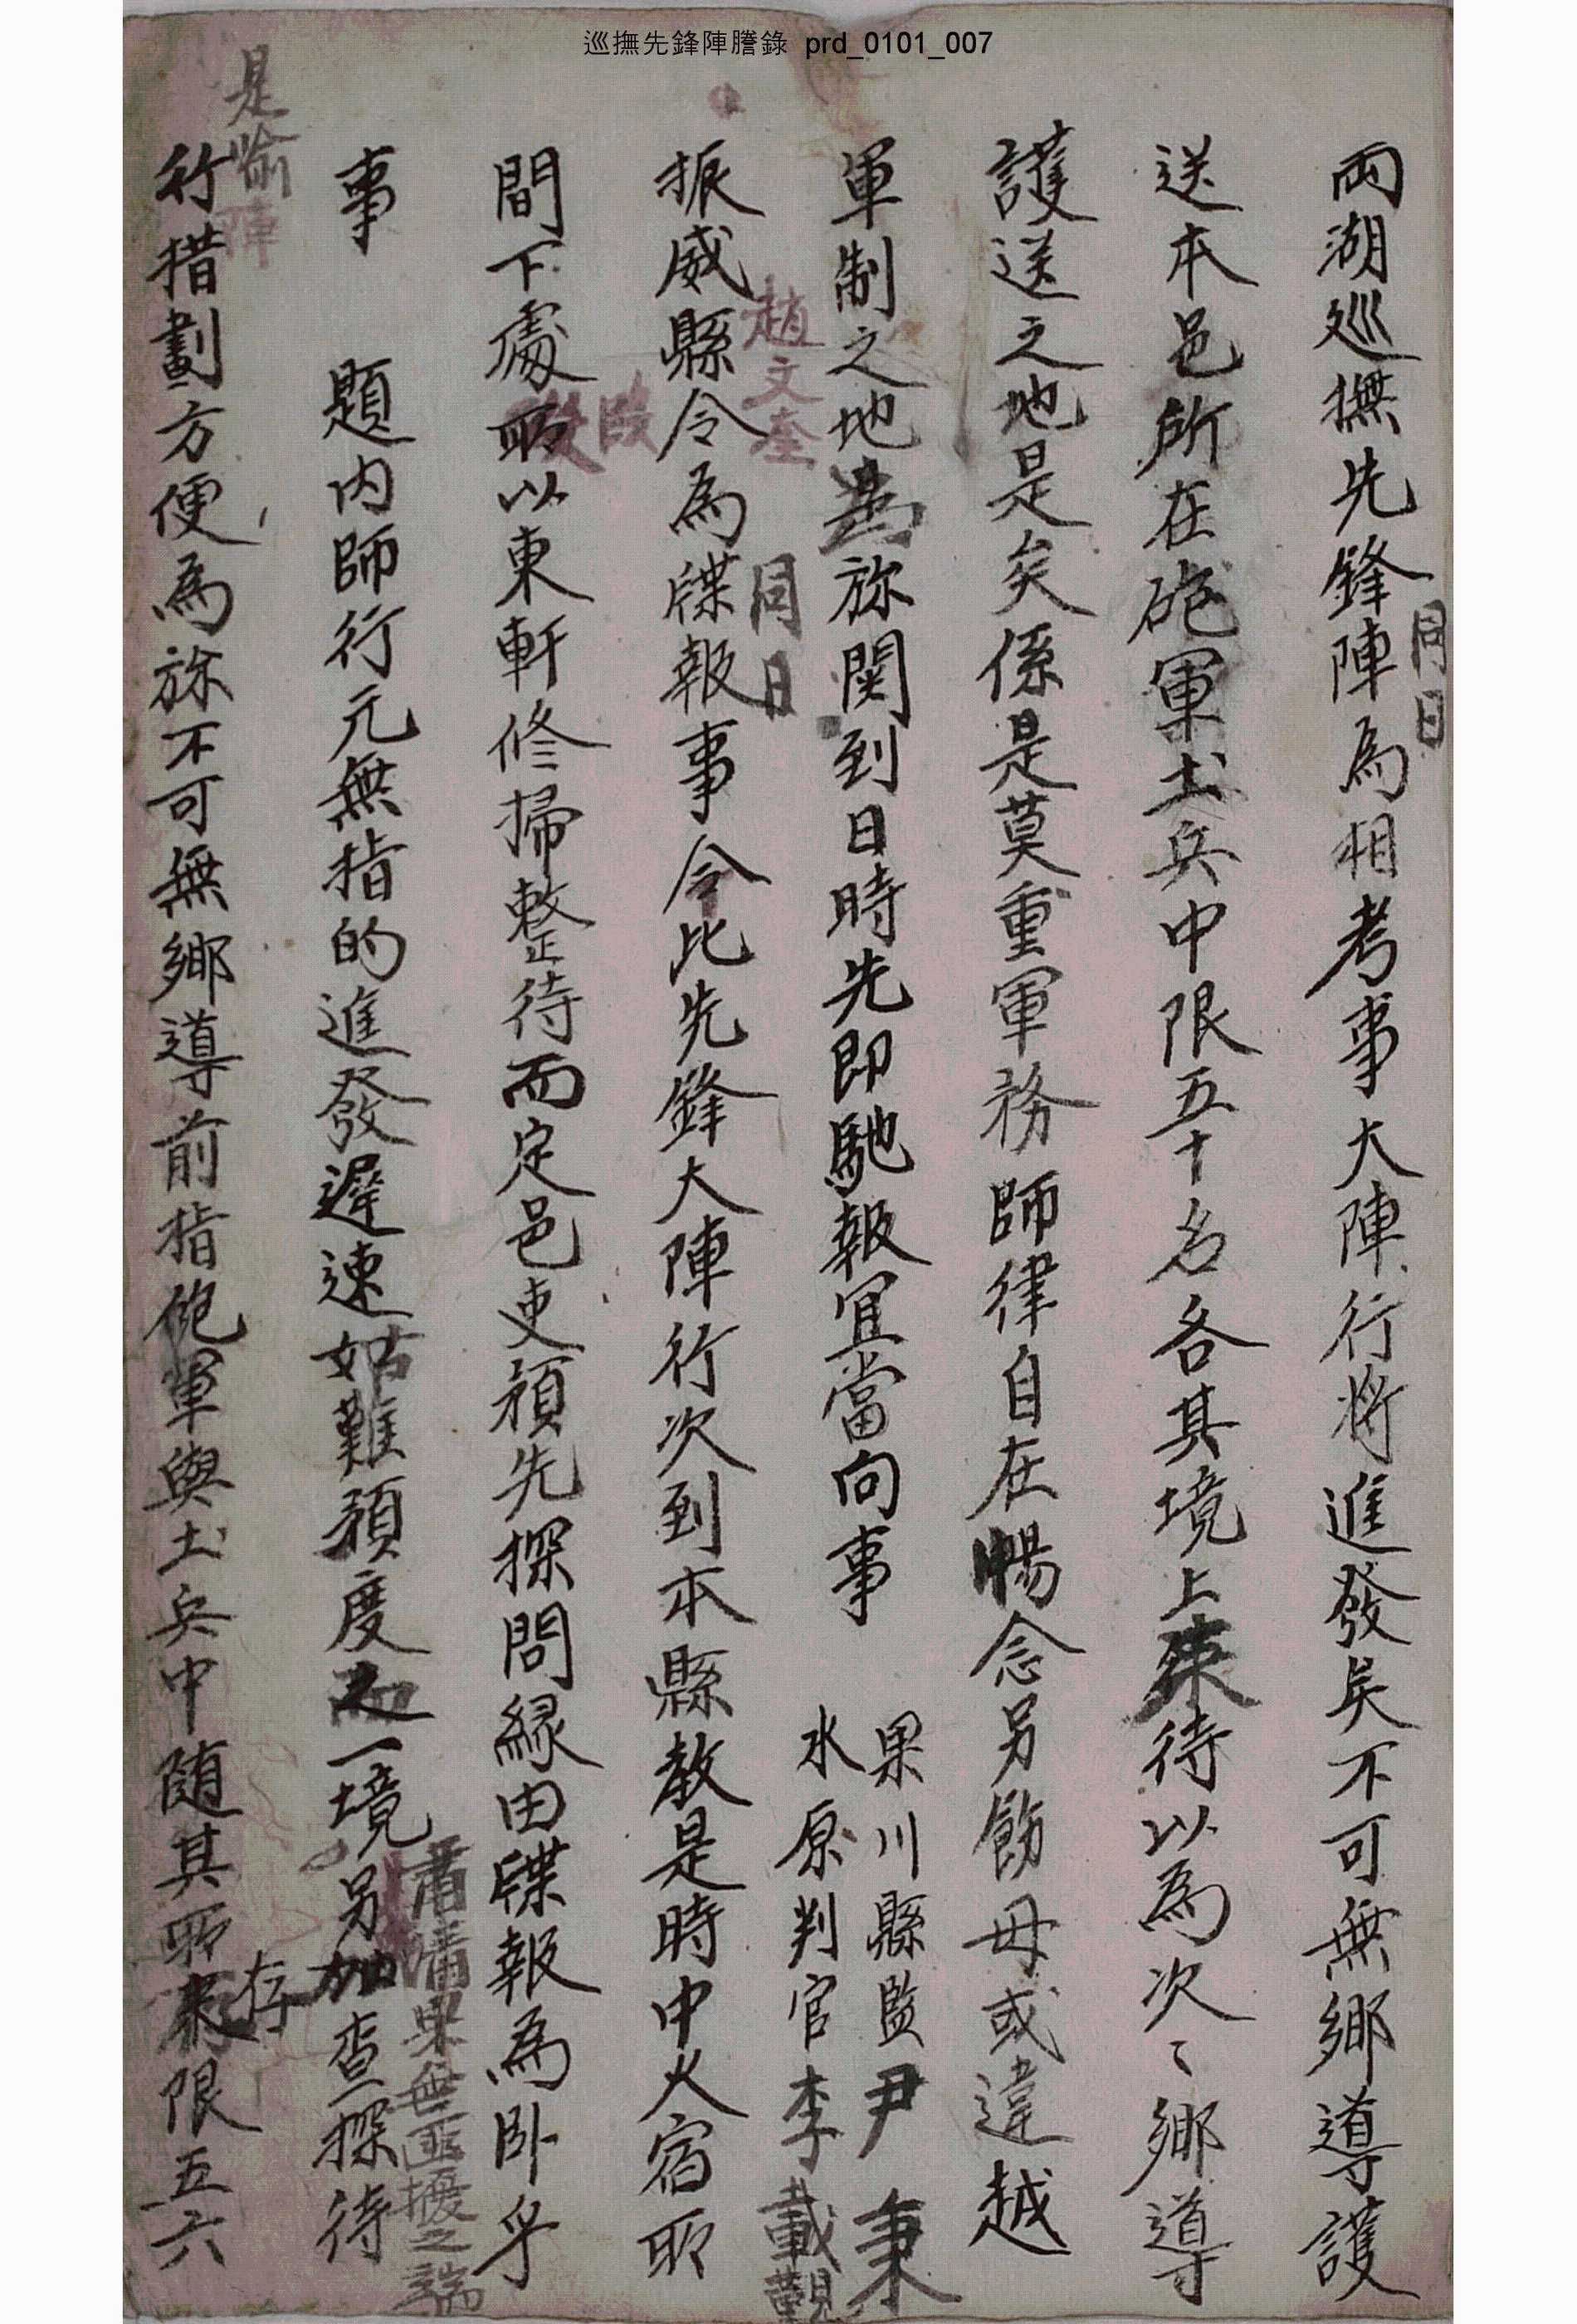 巡撫先鋒陣謄錄 prd_0101_007
同日
兩湖巡撫先鋒陣為相考事大陣行將進發矣不可無鄉導護
送本邑所在砲軍土兵中限五十名各其境上待以為次〻鄉導
護送之地是矣係是莫重軍務師律自在惕念另飭毋或違越
軍制之地為旀関到日時先即馳報宜當向事
果川縣監尹秉
水原判官李載覲
趙文奎
同日
振威縣令為牒報事令比先鋒大陣行次到本縣教是時中火宿所
段
間下處所以東軒修掃整待而定邑吏預先探問緣由牒報為臥乎
事 題內師行元無指的進發遲速姑難預度之一境另加查探待
肅清果無匪擾之端
是喻陣
行措劃方便為旀不可無鄉導前指砲軍與土兵中隨其所限五六
存